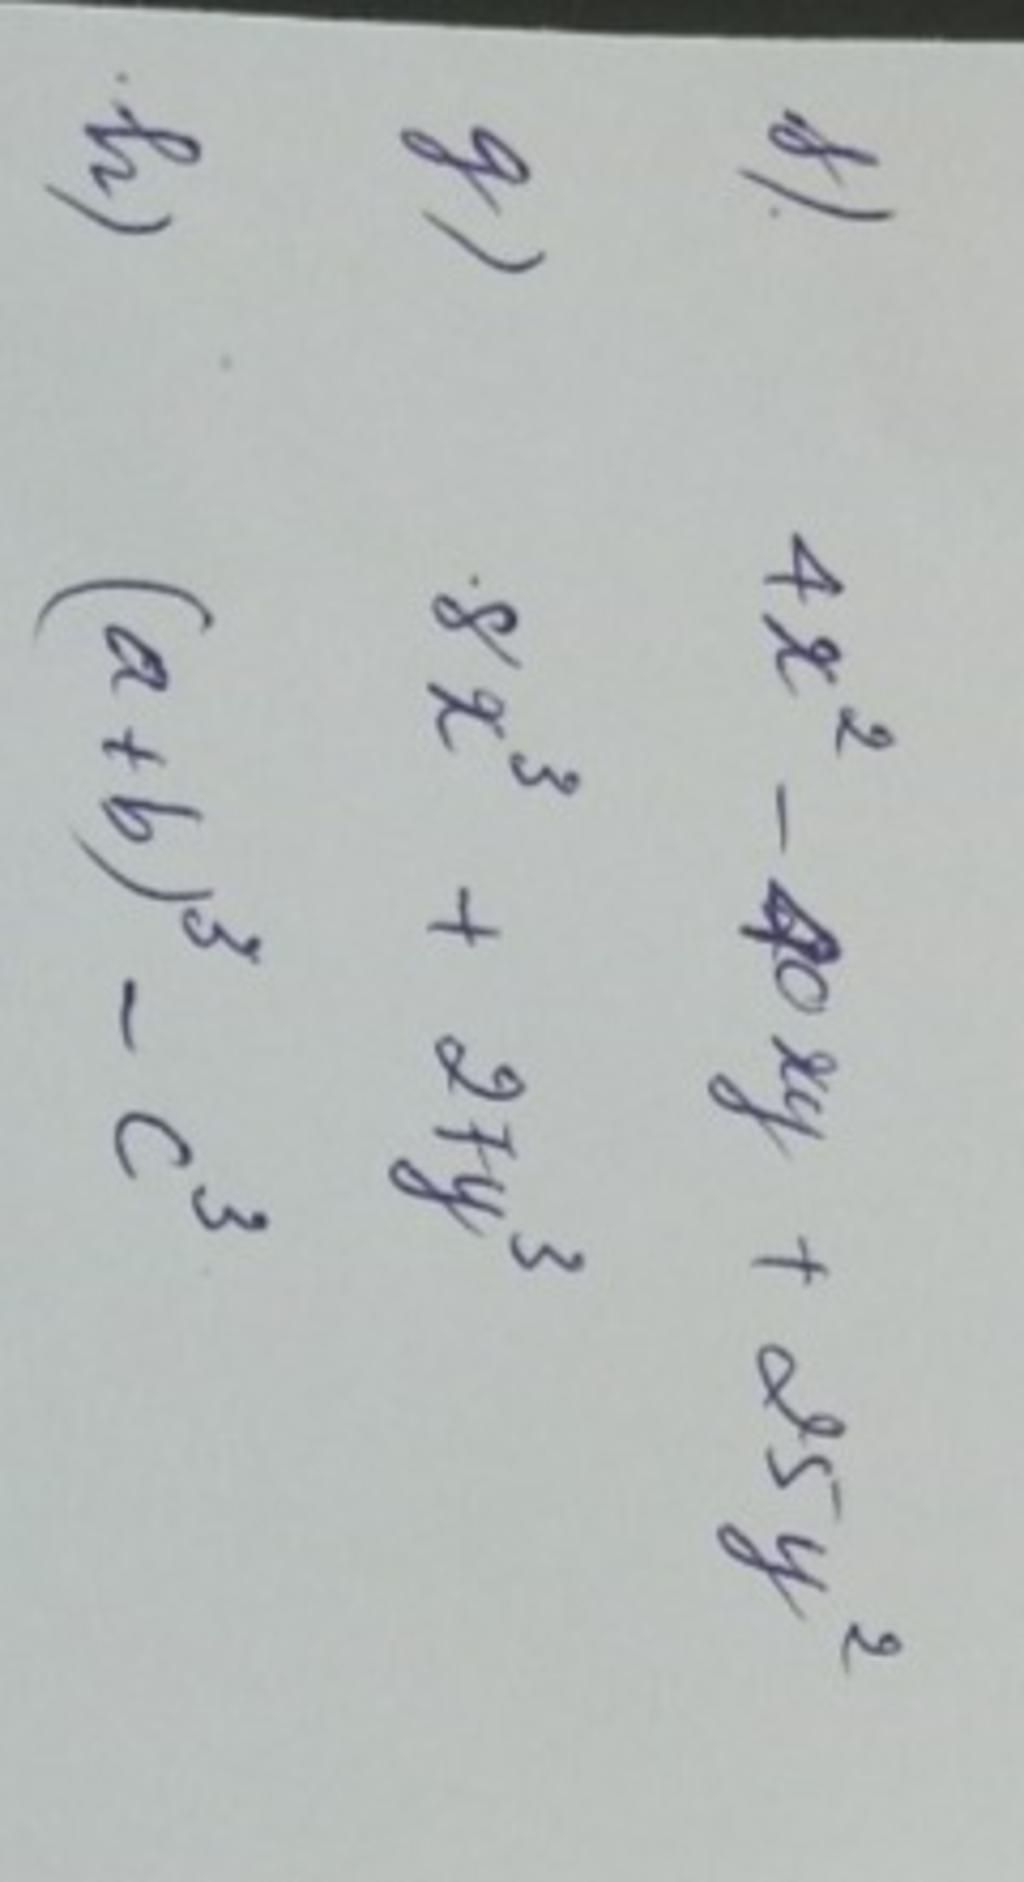 f) 4x² - 40xy + 25y²
g) 8x³ + 27y³
h) (a+b)³ - c³